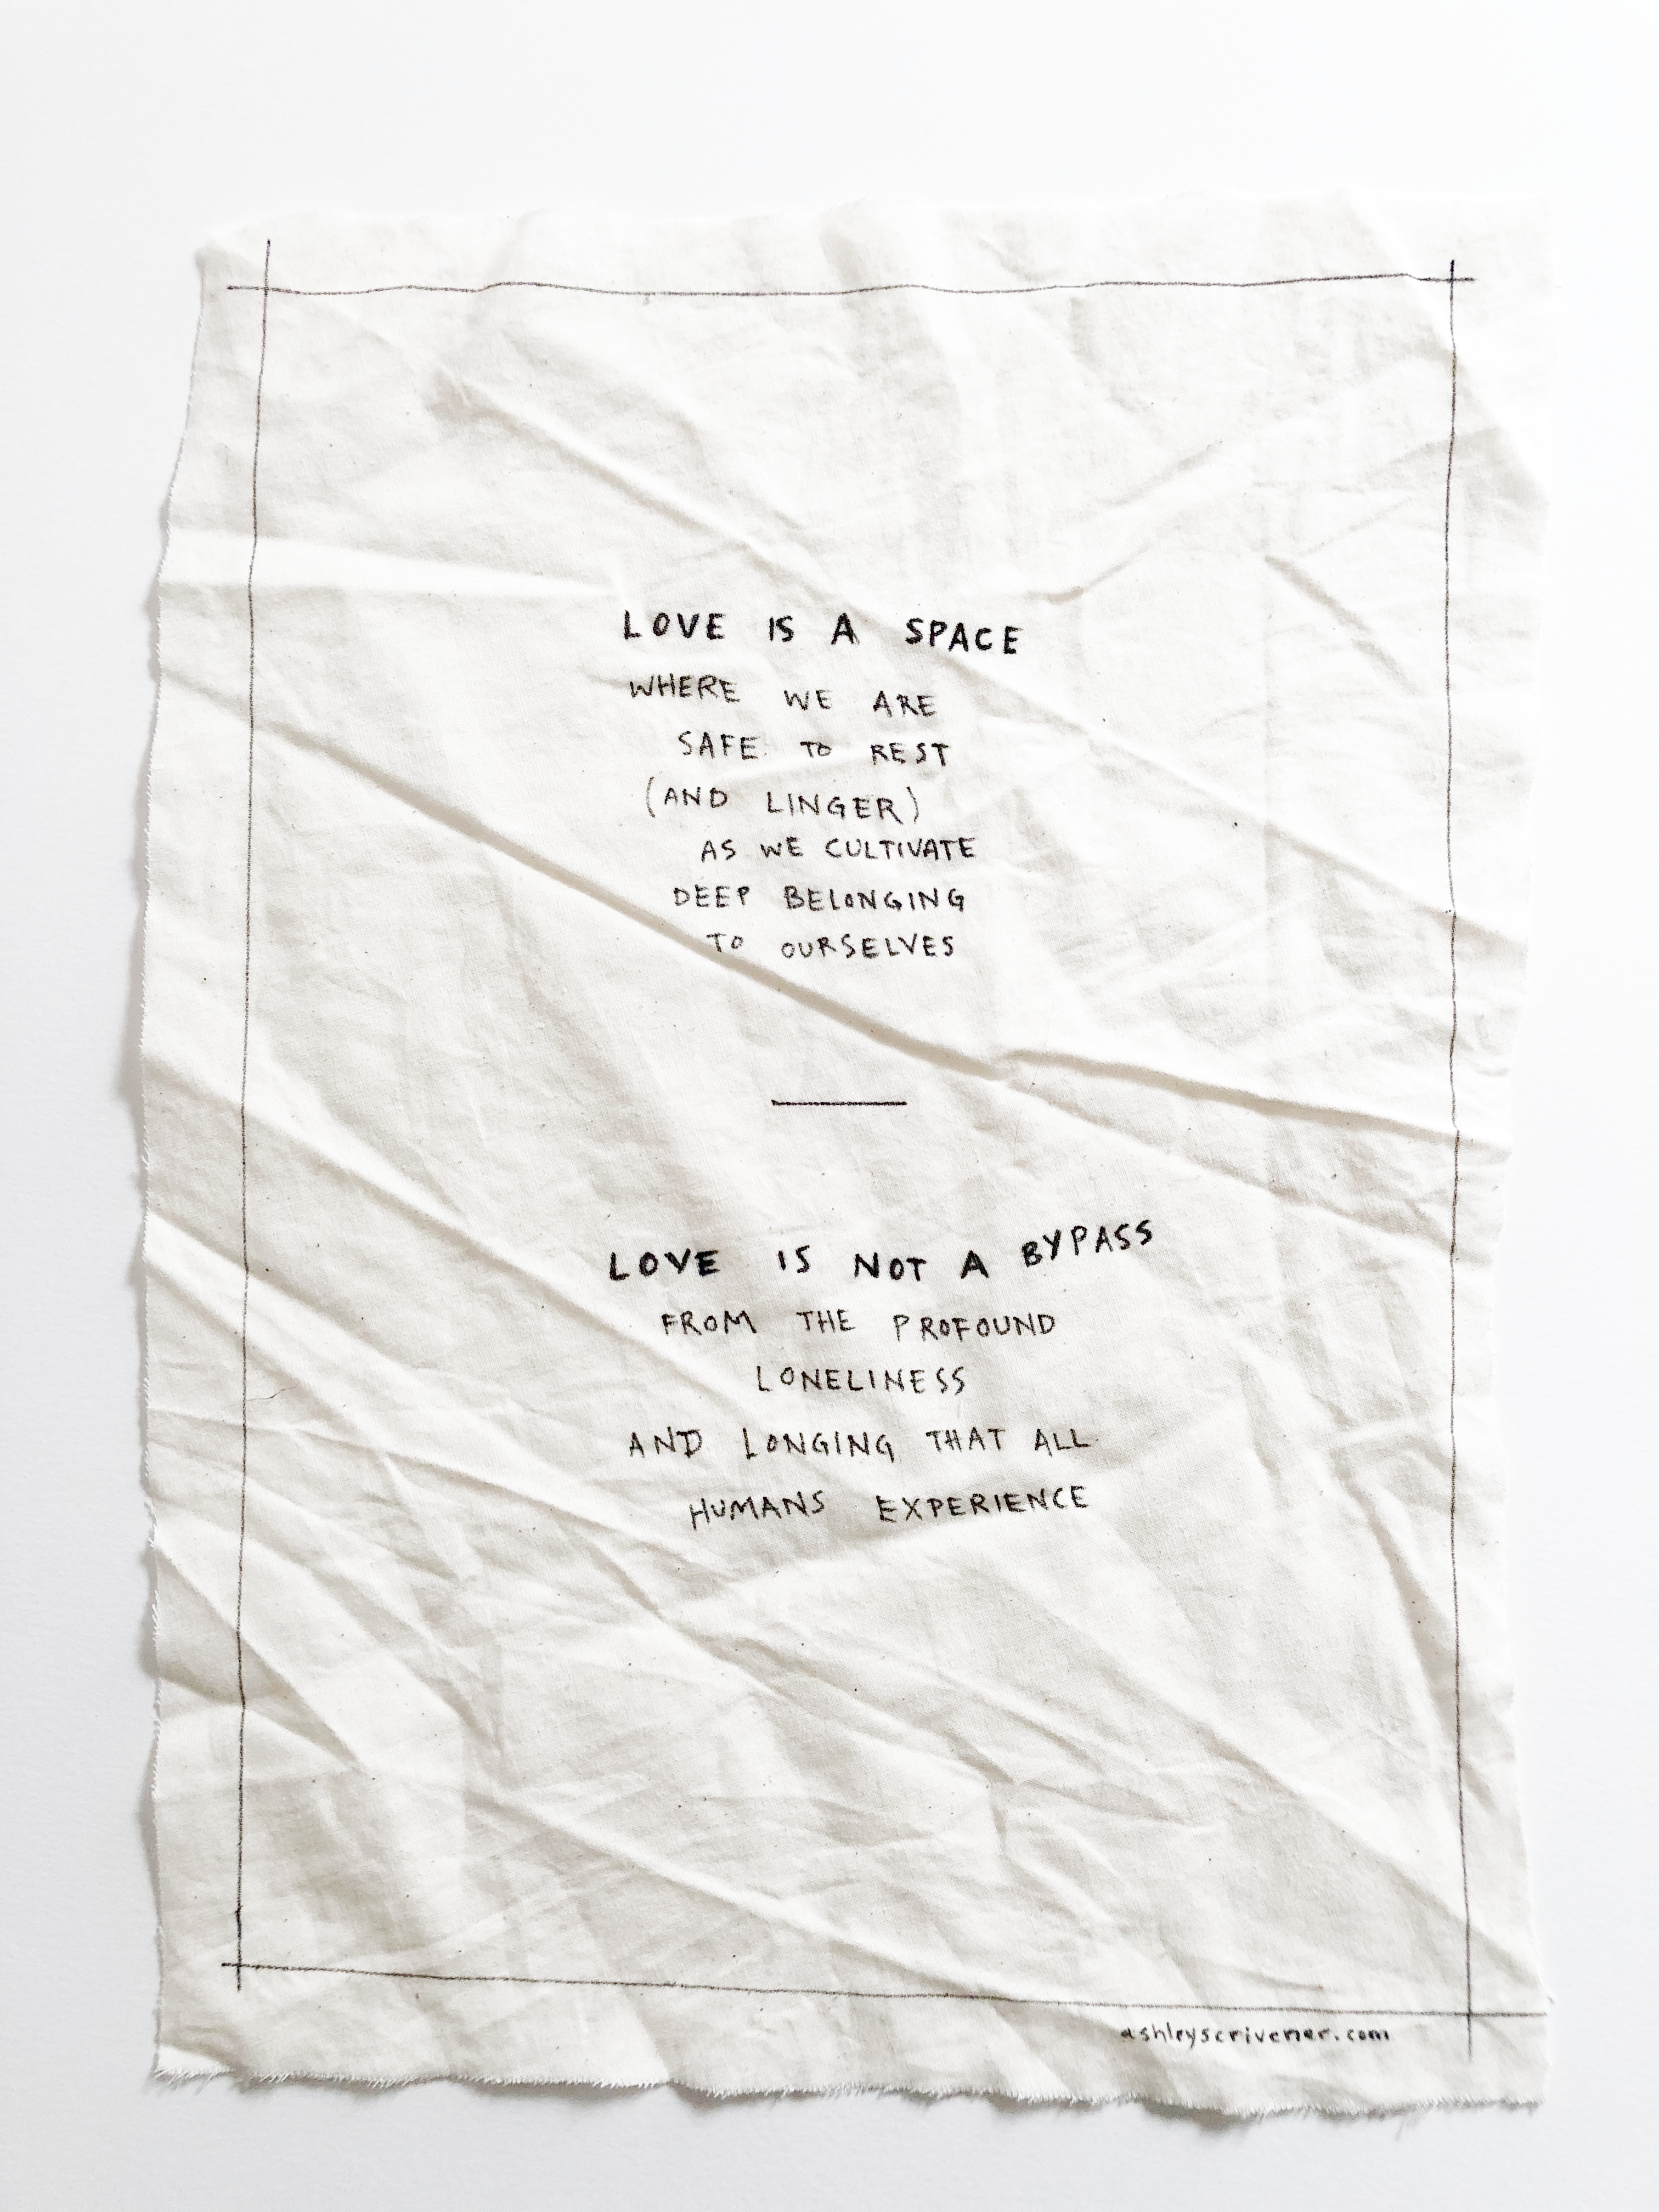 LOVE IS A SPACE
WHERE WE ARE
SAFE TO REST
(AND LINGER)
AS WE CULTIVATE
DEEP BELONGING
TO OURSELVES
LOVE IS NOT A BYPASS
FROM THE PROFOUND
LONELINESS
AND LONGING THAT ALL
HUMANS EXPERIENCE
ashleyscrivener.com